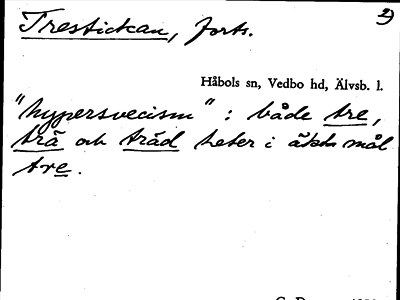 Trestickan, forts.
2)
Håbols sn, Vedbo hd, Älvsb. l.
"hypersvecism" : både tre,
trä och träd heter i äkta mål
tre.